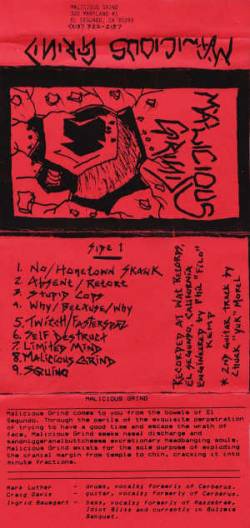 MALICIOUS GRIND
EL SEGUNDO, CA 90245
MALICIOUS GRIND
MALICIOUS
GRIND
Side 1
1. No/Hometown Skawk
2. Absent/Retort
3. Stupid Cops
4. Why/Because/Why
5. Twitch/Fasterspaz
6. Self Destruct
7. Limited Mind
8. Malicious Grind
9. Squing
Recorded at Nat Records,
El Segundo, California
Engineered by Phil "Filo"
Kemp
* 2nd guitar track by
Chuck "Yuk" Morel
MALICIOUS GRIND
Malicious Grind comes to you from the bowels of El
Segundo. Through the perils of the exquisite perpetration
of trying to have a good time and escape the wrath of
face, Malicious Grind seeks nasal discharge and
excretionary headbanging souls.
Malicious Grind exists for the sole purpose of exploding
the cranial margin from temple to chin, cracking it into
minute fractions.
Mark Luther - drums, vocals; formerly of Cerberus.
Craig Davis - guitar, vocals; formerly of Cerberus.
Ingrid Baumgart - bass, vocals; formerly of
Idiot Bliss and currently in Bulimia
Banquet.